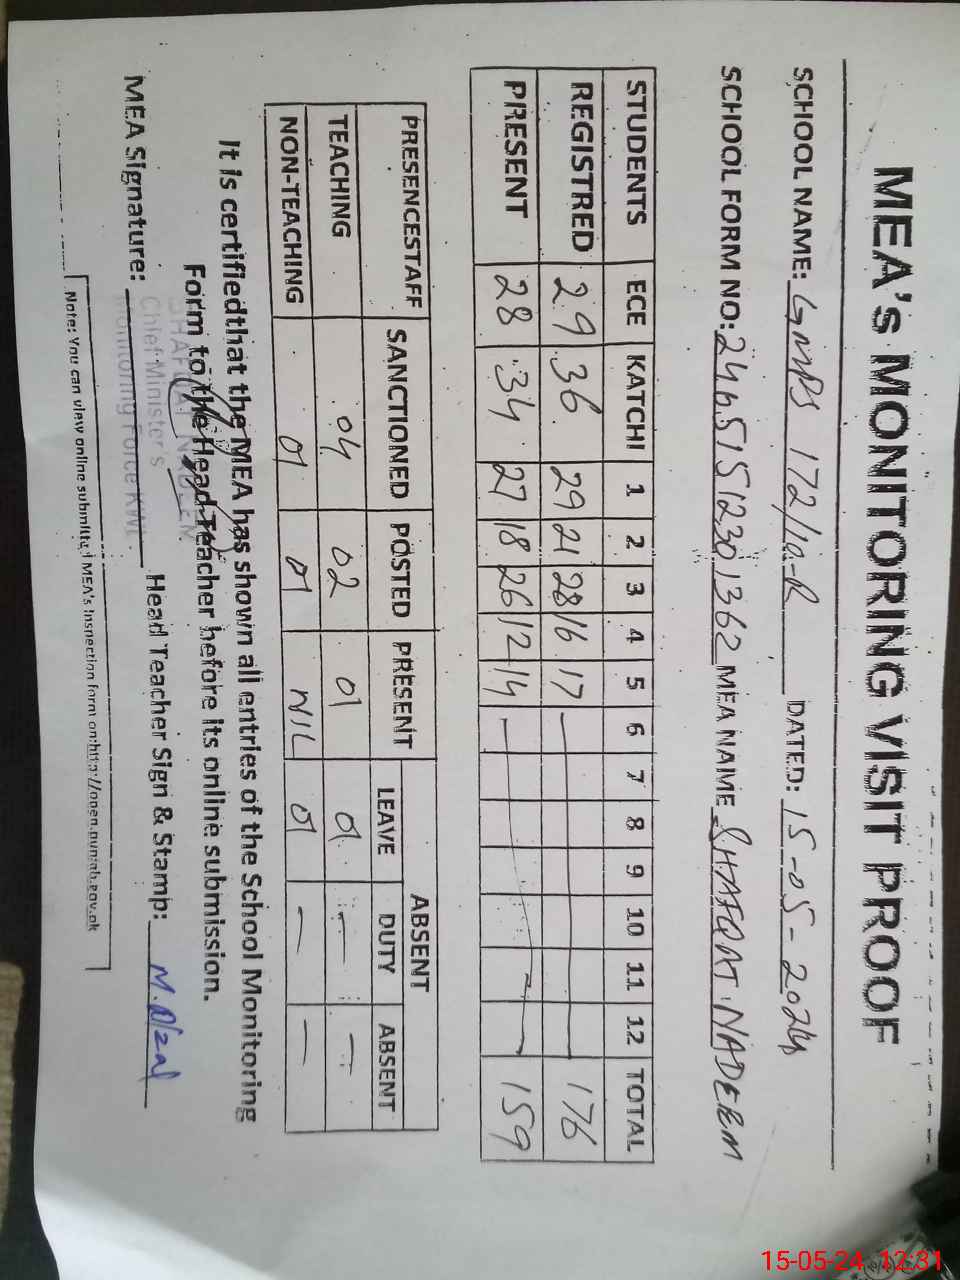 MEA's MONITORING VISIT PROOF
SCHOOL NAME: GMPS 172/10-R DATED: 15-05-2024
SCHOOL FORM NO: 24b51512301362 MEA NAME SHAFQAT NADEEM
STUDENTS ECE KATCHI 1 2 3 4 5 6 7 8 9 10 11 12 TOTAL
REGISTRED 29 36 29 21 28 16 17 176
PRESENT 28 34 27 18 26 12 14 159
PRESENCESTAFF SANCTIONED POSTED PRESENT ABSENT
LEAVE DUTY ABSENT
TEACHING 04 02 01 01 — —
NON-TEACHING 01 01 NIL 01 — —
It is certifiedthat the MEA has shown all entries of the School Monitoring
Form to the Head Teacher before its online submission.
SHAFQAT NADEEM
Chief Minister's
Monitoring Force KWL.
MEA Signature: Head Teacher Sign & Stamp: M. Afzal
Note: You can view online submitted MEA's Inspection form on:http://open.punjab.gov.pk
15-05-24 12:31